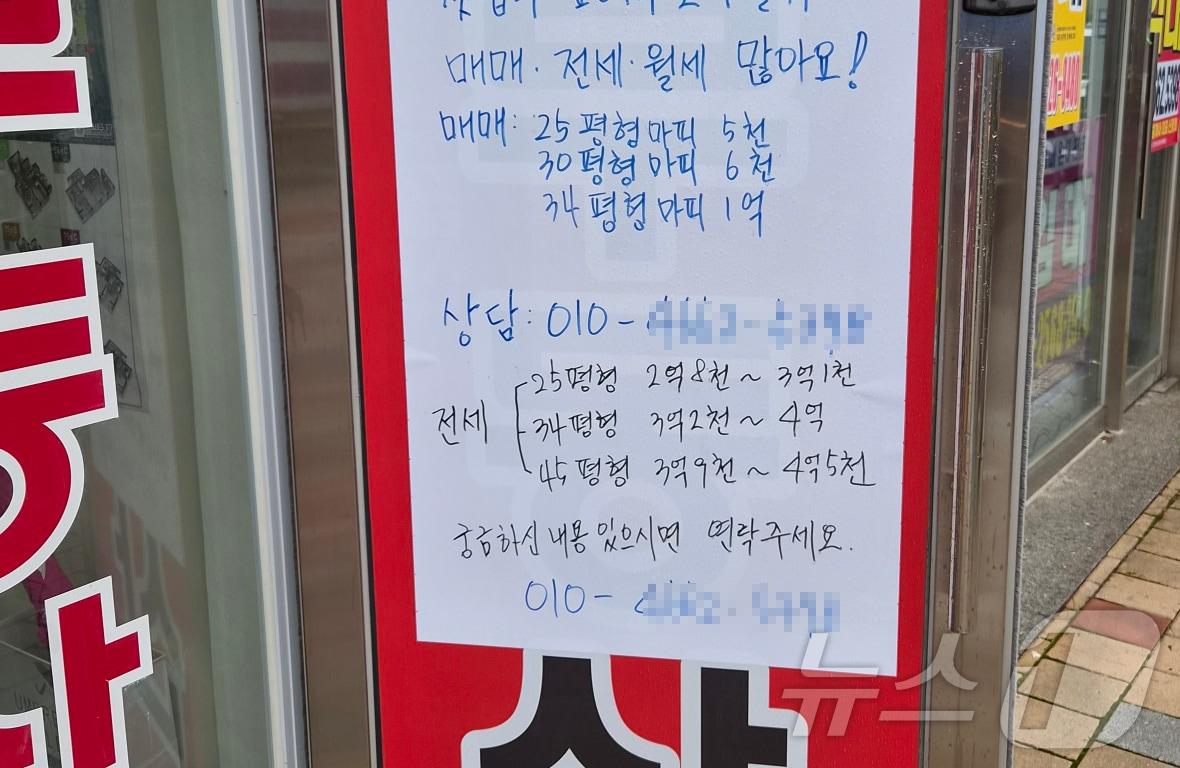 매매·전세·월세 많아요!
매매: 25평형 마피 5천
30평형 마피 6천
34평형 마피 1억
상담: 010-
전세 25평형 2억8천~3억1천
34평형 3억2천~4억
45평형 3억9천~4억5천
궁금하신 내용 있으시면 연락주세요.
010-
뉴스1